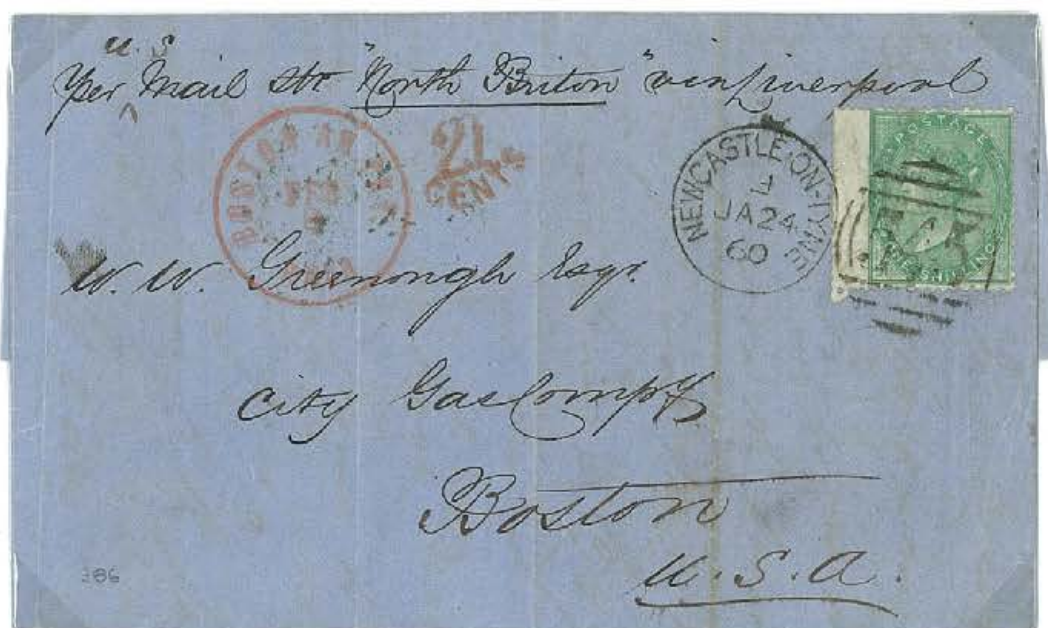 U.S
Per Mail Str "North Briton" via Liverpool
BOSTON BR. PKT
FEB
21
CENTS
NEWCASTLE-ON-TYNE
JA 24
60
POSTAGE
ONE SHILLING
W. W. Greenough Esqr.
City Gas Compy
Boston
U.S.A.
386